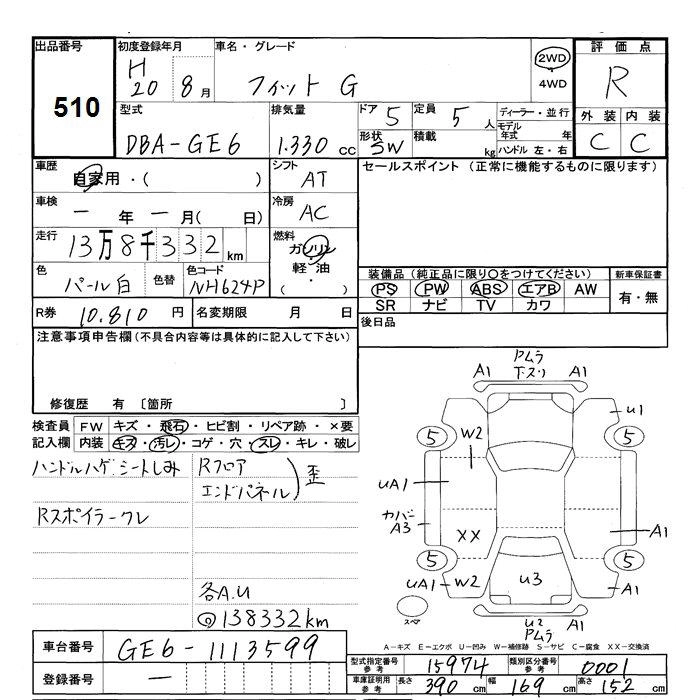 出品番号
510
初度登録年月
H 20 8月
車名・グレード
フィット G
2WD
4WD
評価点
R
外装 内装
C C
型式
DBA-GE6
排気量
1.330 cc
ドア 5
定員 5 人
形状 5W
積載 kg
ディーラー・並行
モデル年式 年
ハンドル 左・右
車歴
自家用・( )
シフト
AT
セールスポイント (正常に機能するものに限ります)
車検
ー年ー月( 日)
冷房
AC
走行
13万8千332km
燃料
ガソリン
軽油
( ・ )
色
パール白
色替
色コード
NH624P
装備品 (純正品に限り○をつけてください)
PS PW ABS エアB AW
SR ナビ TV カワ
新車保証書
有・無
R券 10.810 円
名変期限 月 日
後日品
注意事項申告欄 (不具合内容等は具体的に記入して下さい)
修復歴 有 〔箇所 〕
検査員記入欄
FW キズ・飛石・ヒビ割・リペア跡・×要
内装 キズ・汚レ・コゲ・穴・スレ・キレ・破レ
ハンドルハゲ シートしみ
Rスポイラークレ
Rフロア
エンドパネル
歪
各A.U
◎138332km
Pムラ
下スリ
A1 A1
U1
5 5
W2
UA1
カバー
A3
XX
A1
5 5
UA1 W2
U3
A1
スペア
U2
Pムラ
A-キズ E-エクボ U-凹み W-補修跡 S-サビ C-腐食 XX-交換済
車台番号
GE6-1113599
登録番号
ー
型式指定番号 参考
15974
類別区分番号 参考
0001
車庫証明用 参考
長さ 390 cm
幅 169 cm
高さ 152 cm